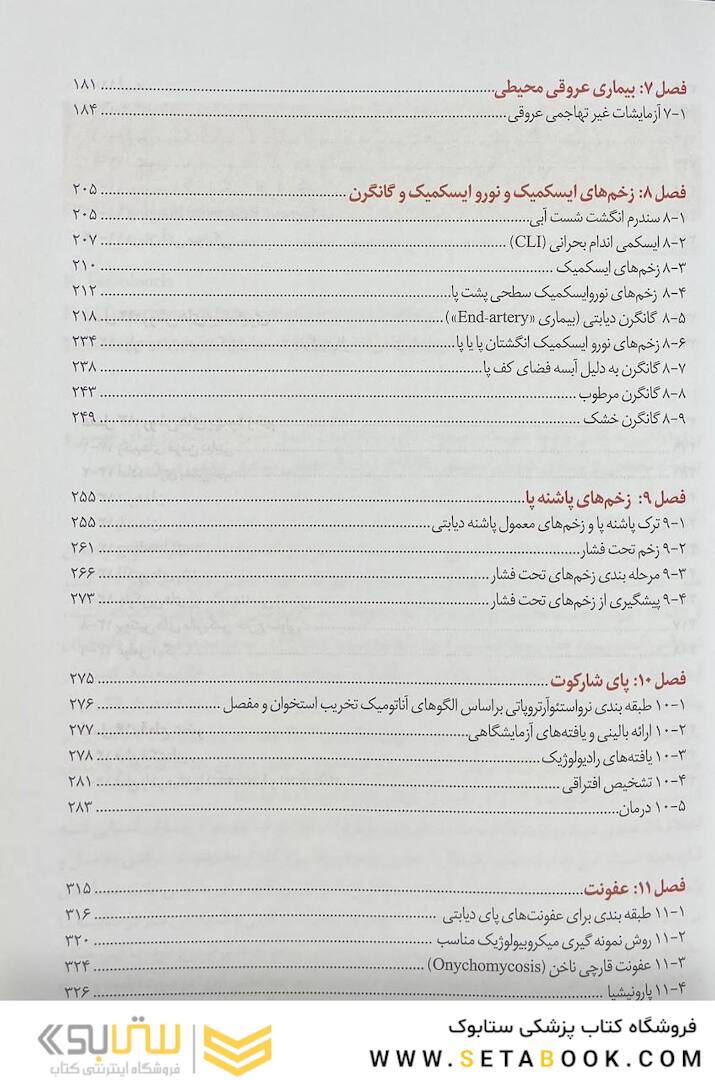 فصل ۷: بیماری عروقی محیطی ۱۸۱
۷-۱ آزمایشات غیر تهاجمی عروقی ۱۸۴
فصل ۸: زخم‌های ایسکمیک و نورو ایسکمیک و گانگرن ۲۰۵
۸-۱ سندرم انگشت شست آبی ۲۰۵
۸-۲ ایسکمی اندام بحرانی (CLI) ۲۰۷
۸-۳ زخم‌های ایسکمیک ۲۱۰
۸-۴ زخم‌های نوروایسکمیک سطحی پشت پا ۲۱۲
۸-۵ گانگرن دیابتی (بیماری «End-artery») ۲۱۸
۸-۶ زخم‌های نورو ایسکمیک انگشتان پا یا پا ۲۳۴
۸-۷ گانگرن به دلیل آبسه فضای کف پا ۲۳۸
۸-۸ گانگرن مرطوب ۲۴۳
۸-۹ گانگرن خشک ۲۴۹
فصل ۹: زخم‌های پاشنه پا ۲۵۵
۹-۱ ترک پاشنه پا و زخم‌های معمول پاشنه دیابتی ۲۵۵
۹-۲ زخم تحت فشار ۲۶۱
۹-۳ مرحله بندی زخم‌های تحت فشار ۲۶۶
۹-۴ پیشگیری از زخم‌های تحت فشار ۲۷۳
فصل ۱۰: پای شارکوت ۲۷۵
۱۰-۱ طبقه بندی نرواستئوآرتروپاتی براساس الگوهای آناتومیک تخریب استخوان و مفصل ۲۷۶
۱۰-۲ ارائه بالینی و یافته‌های آزمایشگاهی ۲۷۷
۱۰-۳ یافته‌های رادیولوژیک ۲۷۸
۱۰-۴ تشخیص افتراقی ۲۸۱
۱۰-۵ درمان ۲۸۳
فصل ۱۱: عفونت ۳۱۵
۱۱-۱ طبقه بندی برای عفونت‌های پای دیابتی ۳۱۶
۱۱-۲ روش نمونه گیری میکروبیولوژیک مناسب ۳۲۰
۱۱-۳ عفونت قارچی ناخن (Onychomycosis) ۳۲۴
۱۱-۴ پارونیشیا ۳۲۶
فروشگاه کتاب پزشکی ستابوک
WWW.SETABOOK.COM
ستابوک
فروشگاه اینترنتی کتاب